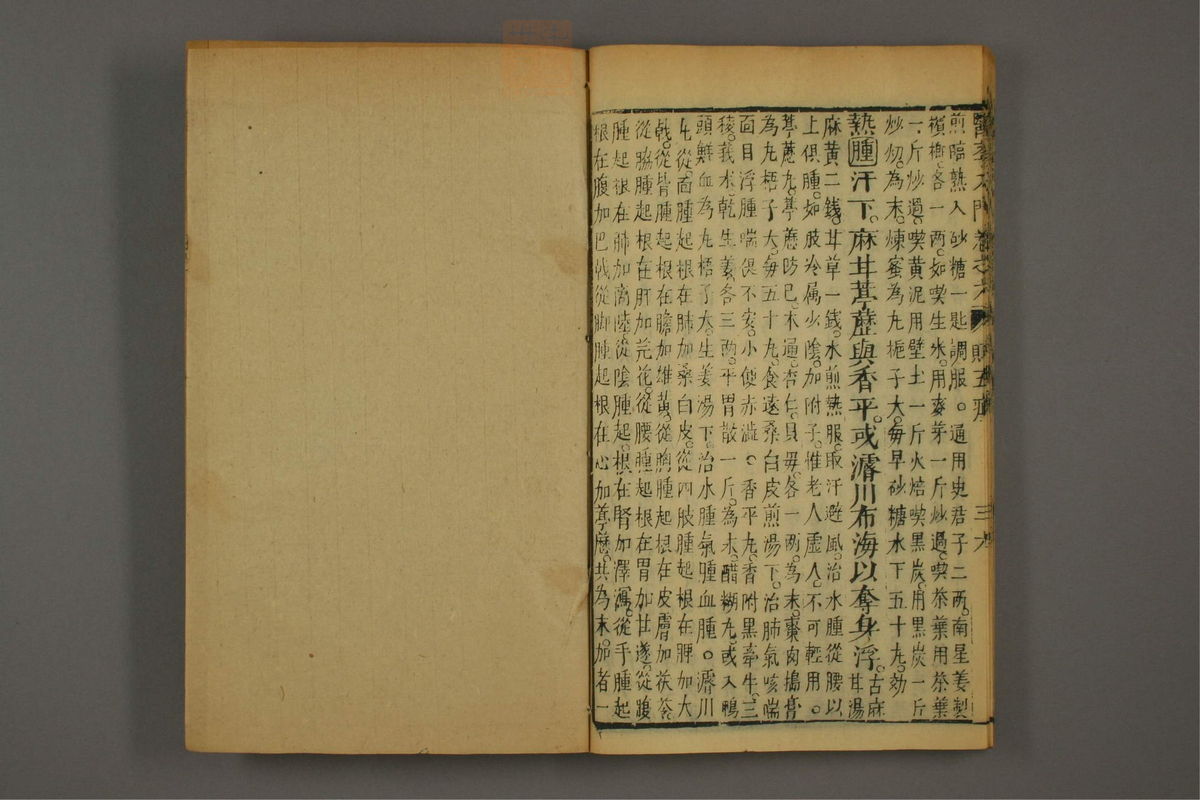 醫學入門 卷之六 賦 五
煎臨熟入砂糖一匙調服。通用史君子二兩。南星姜製
檳榔。各一兩。如喫生米。用麥芽一斤炒過。喫茶葉用茶葉
一斤炒過。喫黃泥用壁土一斤火焙喫黑炭。用黑炭一斤
炒切。為末。煉蜜為丸梔子大。每早砂糖水下五十丸。効
熱腫汗下。麻甘葶藶與香平。或濬川布海以奪身浮。古麻甘湯
麻黃二錢。甘草一錢。水煎熱服。取汗避風。治水腫從腰以
上俱腫。如肢冷属少陰。加附子。惟老人虛人。不可輕用。
葶藶丸。葶藶防巳。木通。杏仁。貝毋。各一兩。為末。棗肉搗膏
為丸梧子大。每五十丸。食遠桑白皮煎湯下。治肺氣咳喘
面目浮腫喘偎不安。小便赤澁。香平丸。香附黑牽牛。三
稜。莪朮。乾生姜。各三兩。平胃散一斤。為末。醋糊丸。或入鴨
頭鮮血為丸梧子大。生姜湯下。治水腫氣腫血腫。濬川
丸從。面腫起根在肺加桑白皮。從四肢腫起根在脾加大
戟。從背腫起根在膽加雄黃。從胸腫起根在皮膚加茯苓
從脇腫起根在肝加芫花。從腰腫起根在胃加甘遂。從腹
腫起根在肺加商陸從陰腫起。根在腎加澤瀉。從手腫起
根在腹加巴戟從脚腫起根在心加葶藶。共為末。加者一